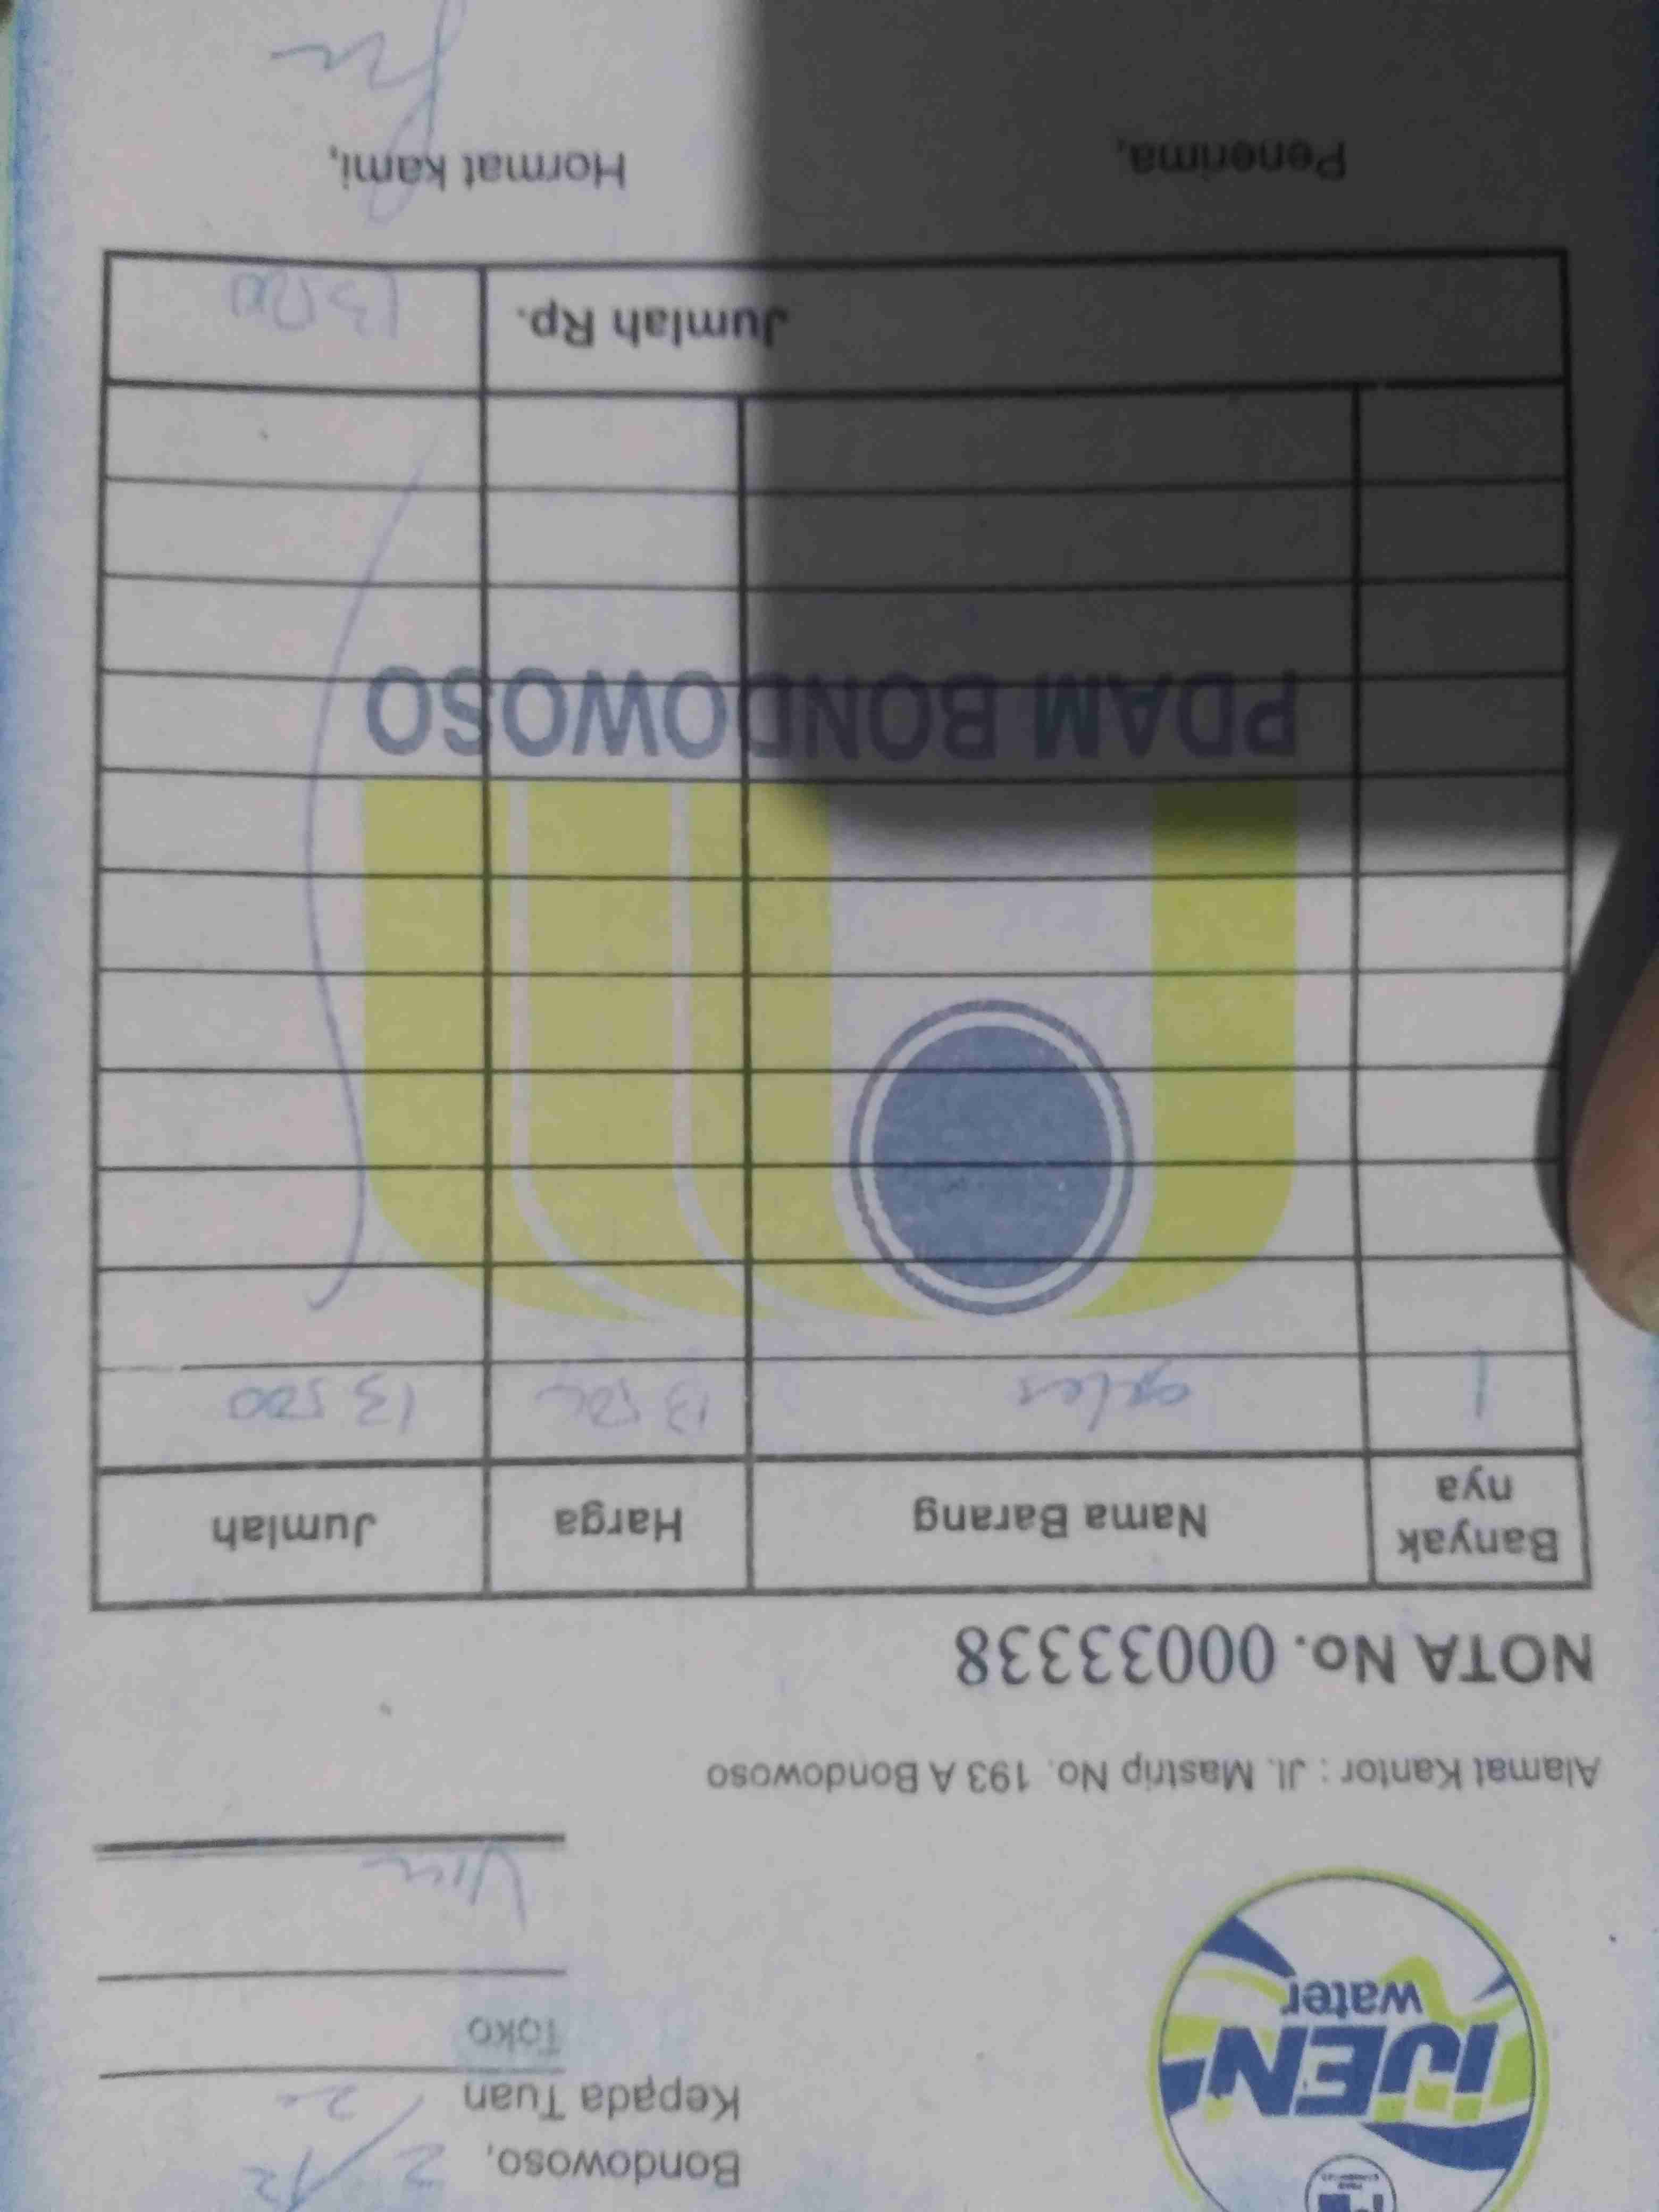 IJEN
water
Bondowoso, 2/12
Kepada Tuan
Toko
Alamat Kantor : Jl. Mastrip No. 193 A Bondowoso
NOTA No. 00033338
Banyak nya Nama Barang Harga Jumlah
1 gelas 13 500 13 500
PDAM BONDOWOSO
Jumlah Rp. 13500
Penerima, Hormat kami,